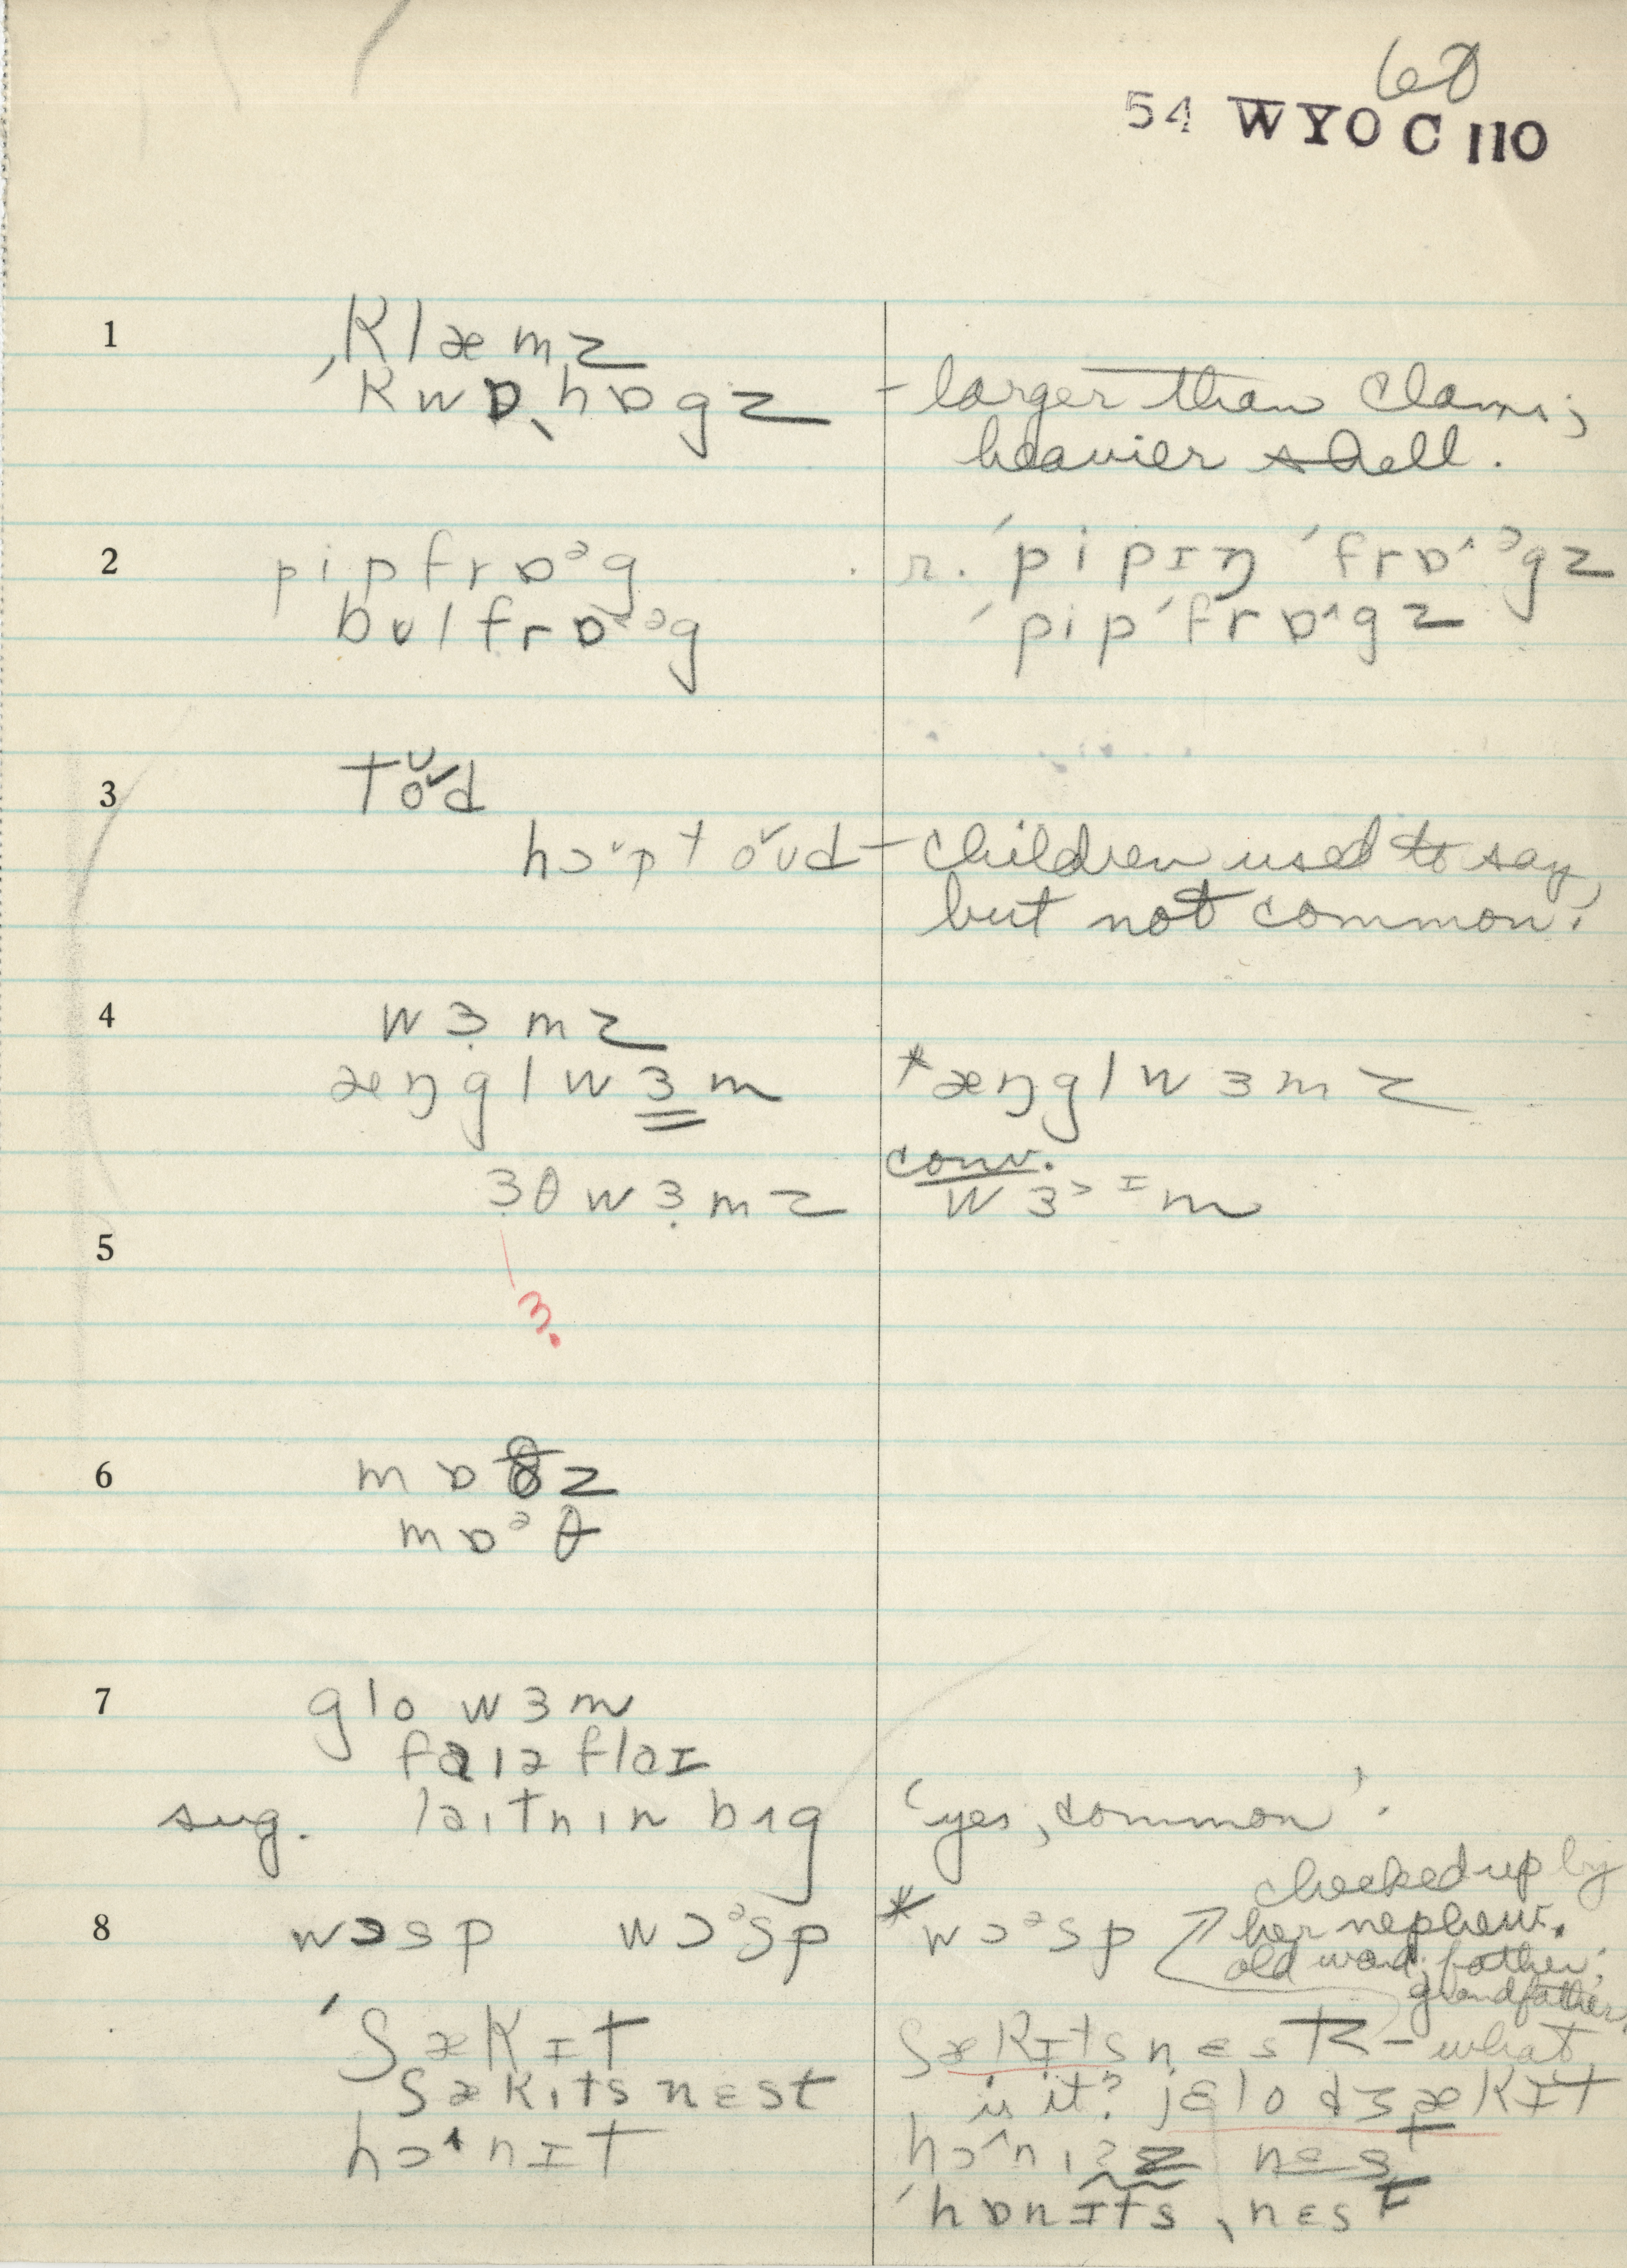 60
54 WYOC 110
1 ˌklæmz
ˈkwɒˌhɒgz – larger than clams;
heavier shell.
2 pipfrɒᵊg r. ˈpipɪŋ ˈfrɒ˄ᵊgz
bʊlfrɒ˄ᵊg ˈpipˈfrɒ˄gz
3 toᵛd
hɔ˅ptoᵛʊd – children used to say,
but not common.
4 wɜ̣mz
æŋglwɜm *æŋglwɜmz
conv.
ɜ̣θwɜ̣mz wɜ˃ᶦm
5
ɜ̣
6 mɒðz
mɒᵊθ
7 glo wɜm
faɪə flaɪ
sug. laɪtnɪn bʌg 'yes, common'.
checked up by
8 wɔsp wɔᵊsp *wɔᵊsp her nephew.
old word; father;
grandfather.
ˈʃækɪt ʃækɪtsnɛst – what
ʃækɪtsnɛst is it? jɛlo dʒækɪt
hɔ˄nɪt hɔ˄nɪz nɛst
ˈhɒnɪtsˌnɛst